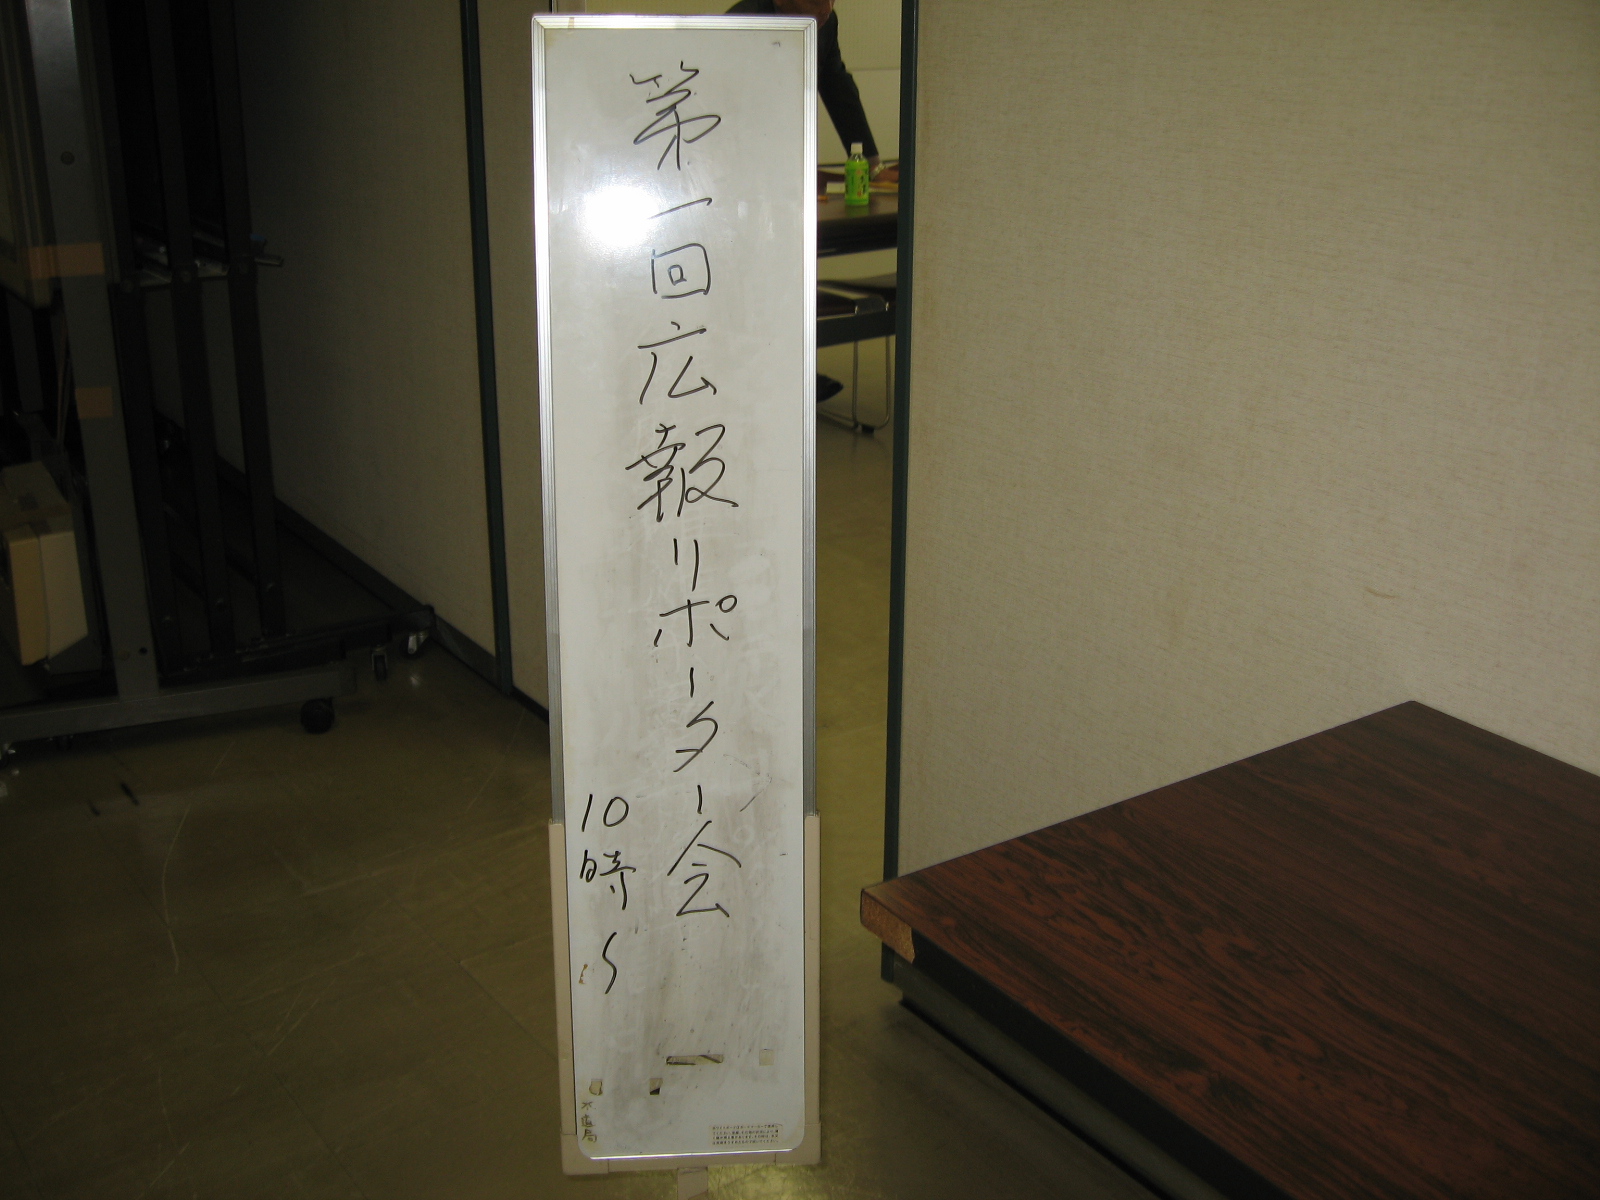 第一回広報リポーター会
10時〜